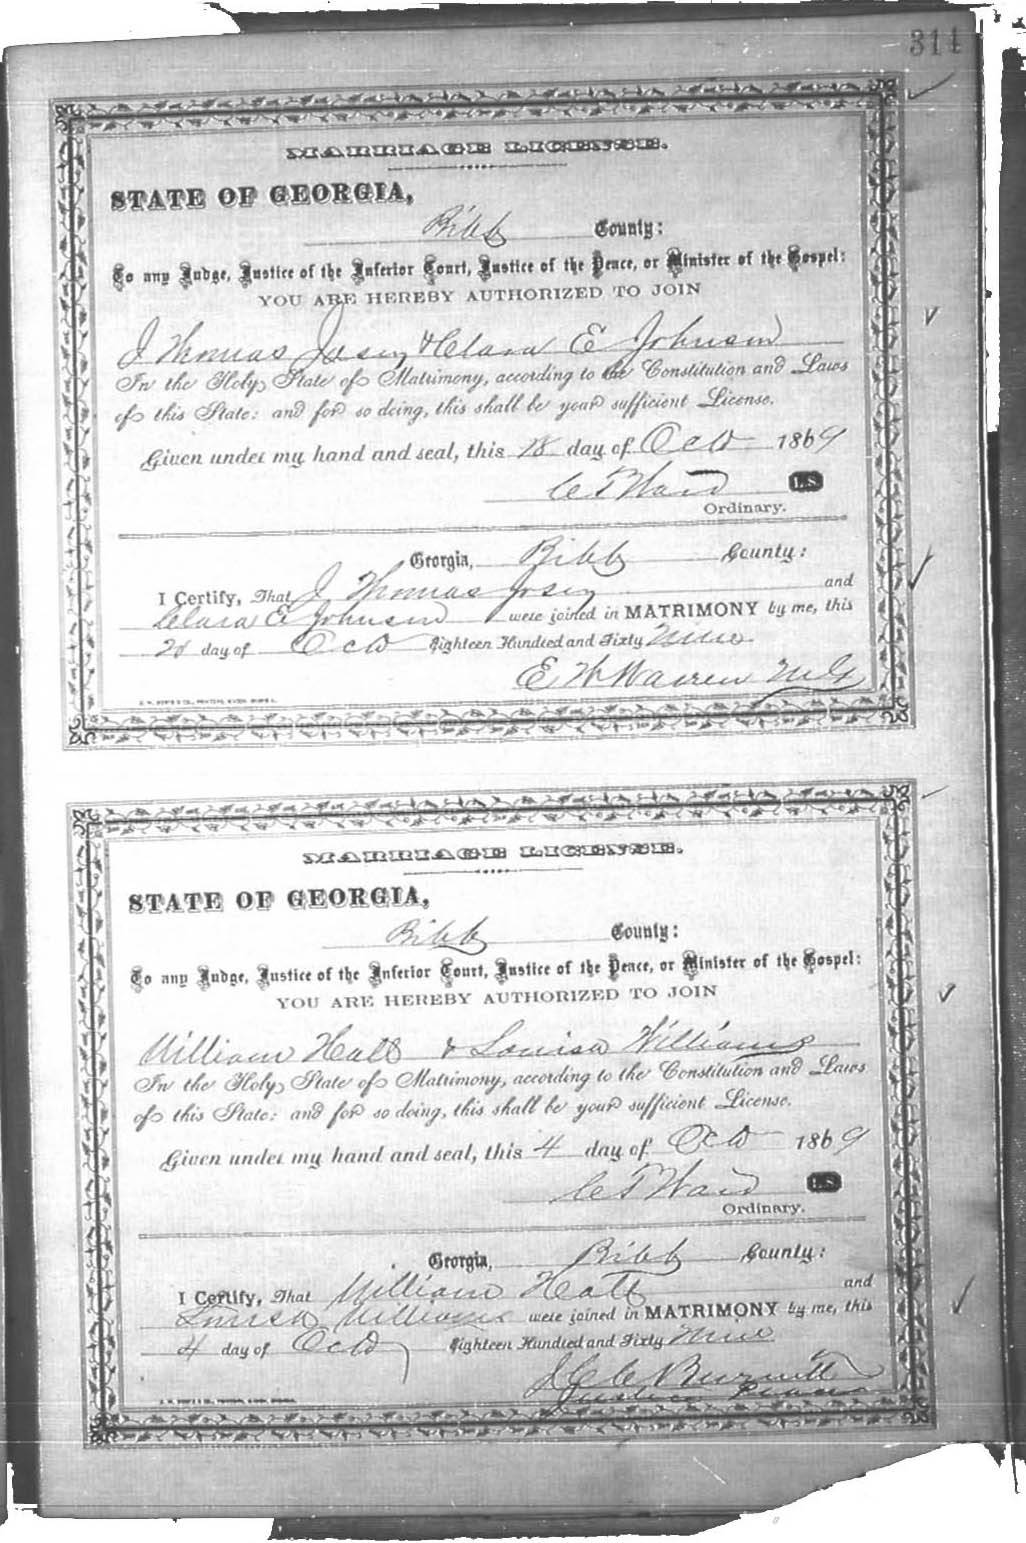 311
MARRIAGE LICENSE.
STATE OF GEORGIA,
Bibb County:
To any Judge, Justice of the Inferior Court, Justice of the Peace, or Minister of the Gospel:
YOU ARE HEREBY AUTHORIZED TO JOIN
J Thomas Josey & Clara E Johnson
In the Holy State of Matrimony, according to the Constitution and Laws
of this State: and for so doing, this shall be your sufficient License.
Given under my hand and seal, this 18 day of Oct 1869
C T Ward L.S.
Ordinary.
Georgia, Bibb County:
I Certify, That J Thomas Josey and
Clara E Johnson were joined in MATRIMONY by me, this
20 day of Oct Eighteen Hundred and Sixty Nine
E W Warren M G
MARRIAGE LICENSE.
STATE OF GEORGIA,
Bibb County:
To any Judge, Justice of the Inferior Court, Justice of the Peace, or Minister of the Gospel:
YOU ARE HEREBY AUTHORIZED TO JOIN
William Hall & Louisa Williams
In the Holy State of Matrimony, according to the Constitution and Laws
of this State: and for so doing, this shall be your sufficient License.
Given under my hand and seal, this 4 day of Oct 1869
C T Ward L.S.
Ordinary.
Georgia, Bibb County:
I Certify, That William Hall and
Louisa Williams were joined in MATRIMONY by me, this
4 day of Oct Eighteen Hundred and Sixty Nine
J C C Burnett
Justice Peace